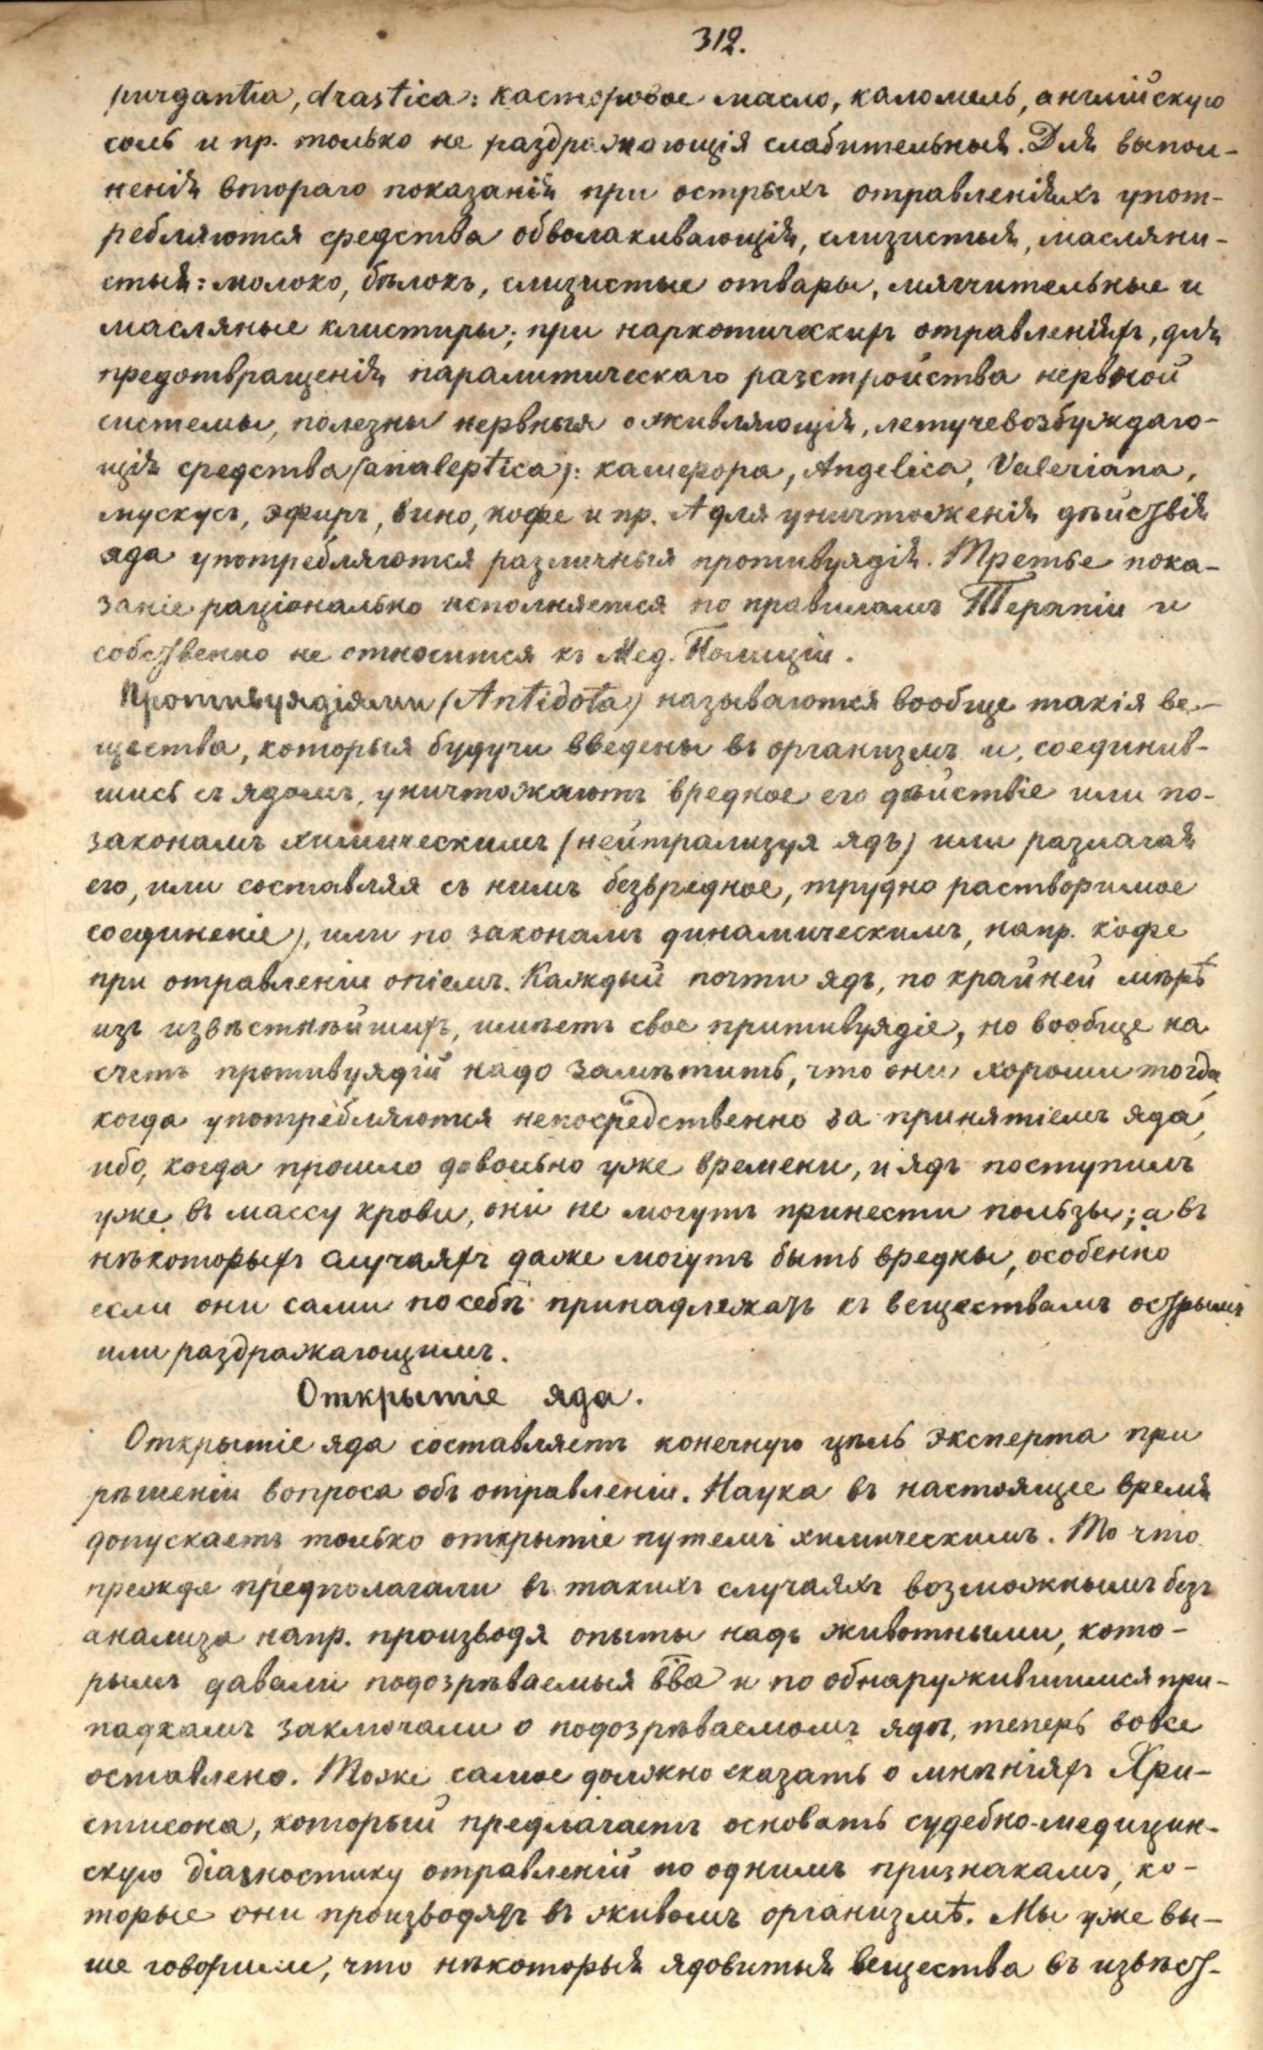 312.
purgantia, drastica: касторовое масло, каломель, англійскую
соль и пр. только не раздражающія слабительныя. Для выпол-
ненія втораго показанія при острыхъ отравленіяхъ упот-
ребляются средства обволакивающія, слизистыя, маслени-
стыя: молоко, бѣлокъ, слизистые отвары, мягчительные и
масляные клистиры; при наркотическихъ отравленіяхъ, для
предотвращенія паралитическаго разстройства нервной
системы, полезны нервныя оживляющія, летучевозбуждаю-
щія средства (analeptica): камфора, Angelica, Valeriana,
мускусъ, эфиръ, вино, кофе и пр. А для уничтоженія дѣйствія
яда употребляются различныя противуядія. Третье пока-
заніе раціонально исполняется по правиламъ Терапіи и
собственно не относится къ Мед. Полиціи.
Противуядіями (Antidota) называются вообще такія ве-
щества, которыя будучи введены въ организмъ и, соединив-
шись съ ядомъ, уничтожаютъ вредное его дѣйствіе или по-
законамъ химическимъ (нейтрализуя ядъ) или разлагая
его, или составляя съ нимъ безвредное, трудно растворимое
соединеніе), или по законамъ динамическимъ, напр. кофе
при отравленіи опіемъ. Каждый почти ядъ, по крайней мѣрѣ
изъ извѣстнѣйшихъ, имѣетъ свое притивуядіе, но вообще на
счетъ противуядій надо замѣтить, что они хороши тогда,
когда употребляются непосредственно за принятіемъ яда,
ибо, когда прошло довольно уже времени, и ядъ поступилъ
уже въ массу крови, они не могутъ принести пользы; а въ
нѣкоторыхъ случаяхъ даже могутъ быть вредны, особенно
если они сами по себѣ принадлежатъ къ веществамъ острымъ
или раздражающимъ.
Открытіе яда.
Открытіе яда составляетъ конечную цѣль эксперта при
рѣшеніи вопроса объ отравленіи. Наука въ настоящее время
допускаетъ только открытіе путемъ химическимъ. То что
прежде предполагали въ такихъ случаяхъ возможнымъ безъ
анализа напр. производя опыты надъ животными, кото-
рымъ давали подозрѣваемыя в̅ва и по обнаружившимся при-
падкамъ заключали о подозрѣваемомъ ядѣ, теперь вовсе
оставлено. Тоже самое должно сказать о мнѣніяхъ Хри-
стисона, который предлагаетъ основать судебно-медицин-
скую діагностику отравленій по однимъ признакамъ, ко-
торые они производятъ въ живомъ организмѣ. Мы уже вы-
ше говорили, что нѣкоторыя ядовитыя вещества въ извѣст-